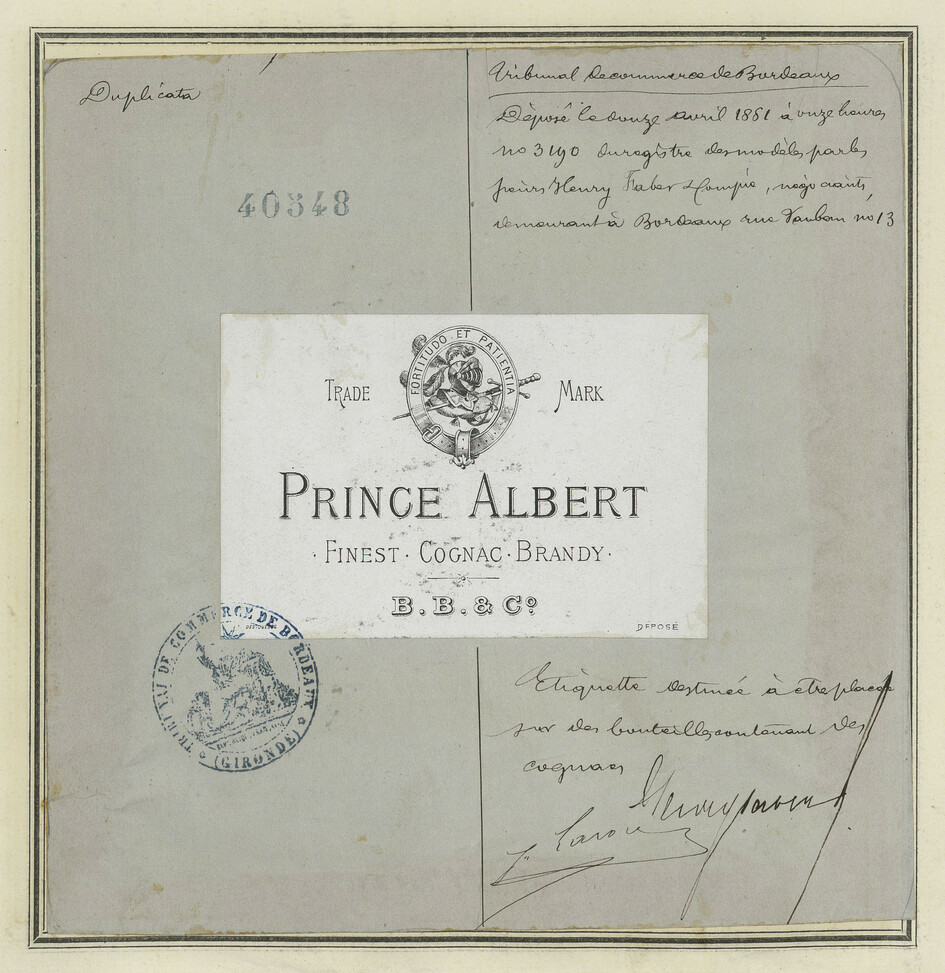 Duplicata
40348
Tribunal de commerce de Bordeaux
Déposé le douze avril 1881 à onze heures
no 3190 du registre des modèles par les
sieurs Henry Faber & Compie, négociants,
demeurant à Bordeaux rue Vauban no 13
FORTITUDO ET PATIENTIA
TRADE MARK
PRINCE ALBERT
· FINEST · COGNAC · BRANDY ·
B. B. & Co.
DEPOSÉ
TRIBUNAL DE COMMERCE DE BORDEAUX
(GIRONDE)
Etiquette destinée à être placée
sur des bouteilles contenant des
cognacs